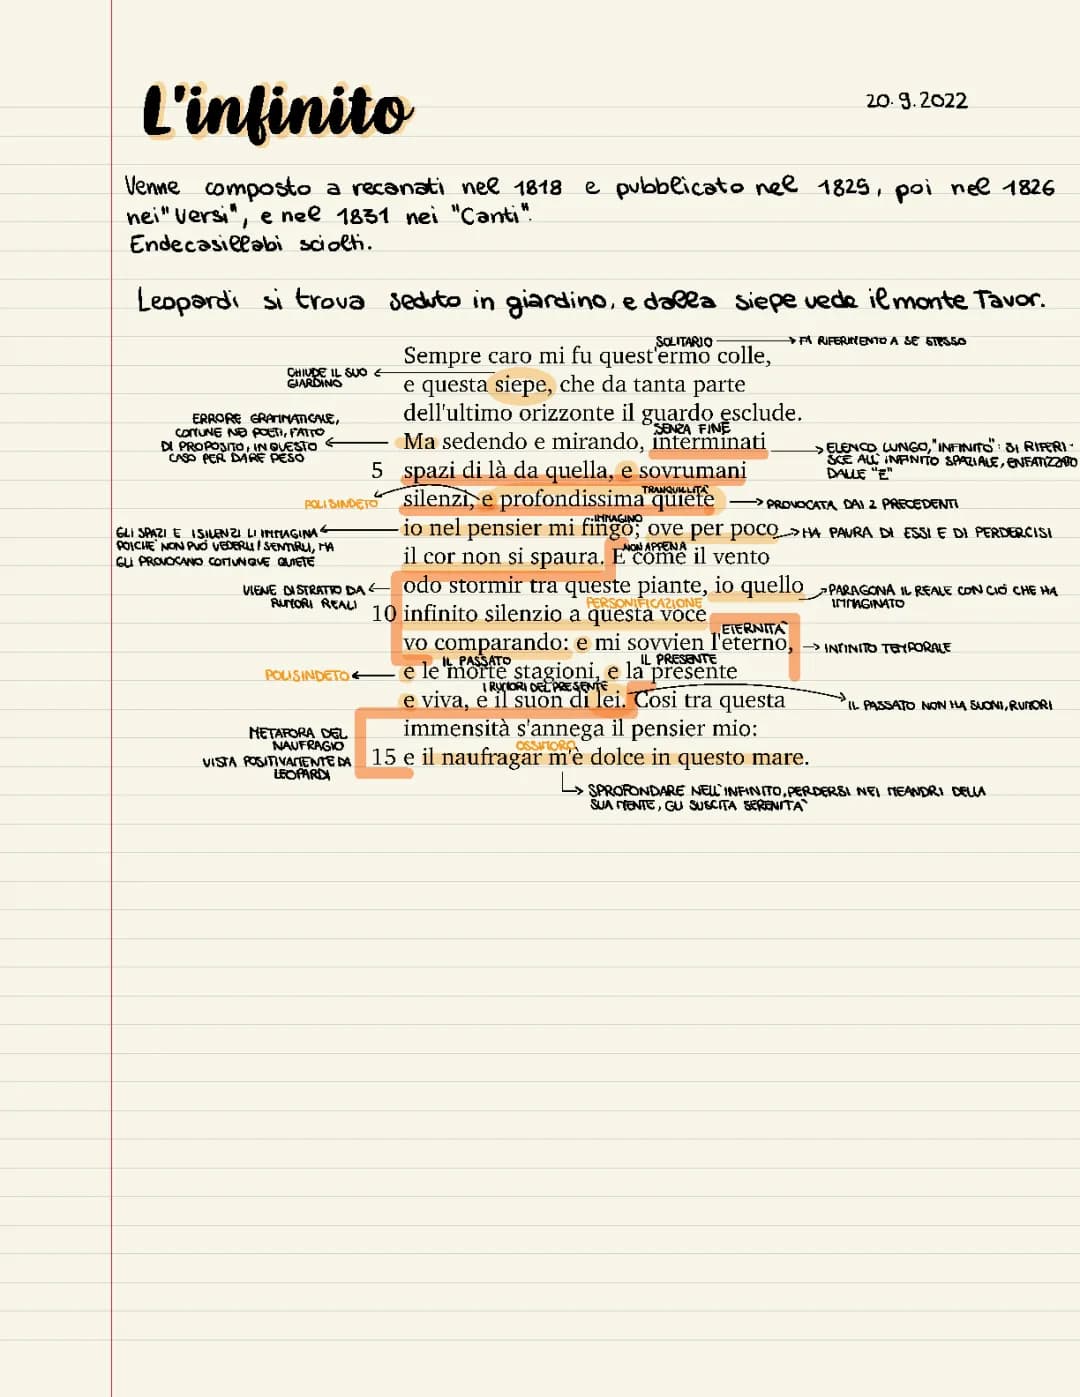 L'infinito
20.9.2022
Venne composto a recanati nel 1818 e pubblicato nel 1825, poi nel 1826
nei "Versi", e nel 1831 nei "Canti".
Endecasillabi sciolti.
Leopardi si trova seduto in giardino, e dalla siepe vede il monte Tavor.
SOLITARIO → FA RIFERIMENTO A SE STESSO
Sempre caro mi fu quest'ermo colle,
CHIUDE IL SUO
GIARDINO
e questa siepe, che da tanta parte
dell'ultimo orizzonte il guardo esclude.
ERRORE GRAMMATICALE,
COMUNE NEI POETI, FATTO
DI PROPOSITO, IN QUESTO
CASO PER DARE PESO
SENZA FINE
Ma sedendo e mirando, interminati
ELENCO LUNGO, "INFINITO": SI RIFERI-
SCE ALL'INFINITO SPAZIALE, ENFATIZZATO
DALLE "E"
5 spazi di là da quella, e sovrumani
POLISINDETO
TRANQUILLITÀ
silenzi, e profondissima quiete
PROVOCATA DAI 2 PRECEDENTI
GLI SPAZI E I SILENZI LI IMMAGINA
POICHÈ NON PUÒ VEDERLI / SENTIRLI, MA
GLI PROVOCANO COMUNQUE QUIETE
IMMAGINO
io nel pensier mi fingo; ove per poco
HA PAURA DI ESSI E DI PERDERCISI
NON APPENA
il cor non si spaura. E come il vento
VIENE DISTRATTO DA
RUMORI REALI
odo stormir tra queste piante, io quello
PARAGONA IL REALE CON CIÒ CHE HA
IMMAGINATO
PERSONIFICAZIONE
10 infinito silenzio a questa voce
ETERNITÀ
vo comparando: e mi sovvien l'eterno,
INFINITO TEMPORALE
POLISINDETO
IL PASSATO
IL PRESENTE
e le morte stagioni, e la presente
I RUMORI DEL PRESENTE
e viva, e il suon di lei. Così tra questa
IL PASSATO NON HA SUONI, RUMORI
METAFORA DEL
NAUFRAGIO
VISTA POSITIVAMENTE DA
LEOPARDI
immensità s'annega il pensier mio:
OSSIMORO
15 e il naufragar m'è dolce in questo mare.
SPROFONDARE NELL'INFINITO, PERDERSI NEI MEANDRI DELLA
SUA MENTE, GLI SUSCITA SERENITÀ